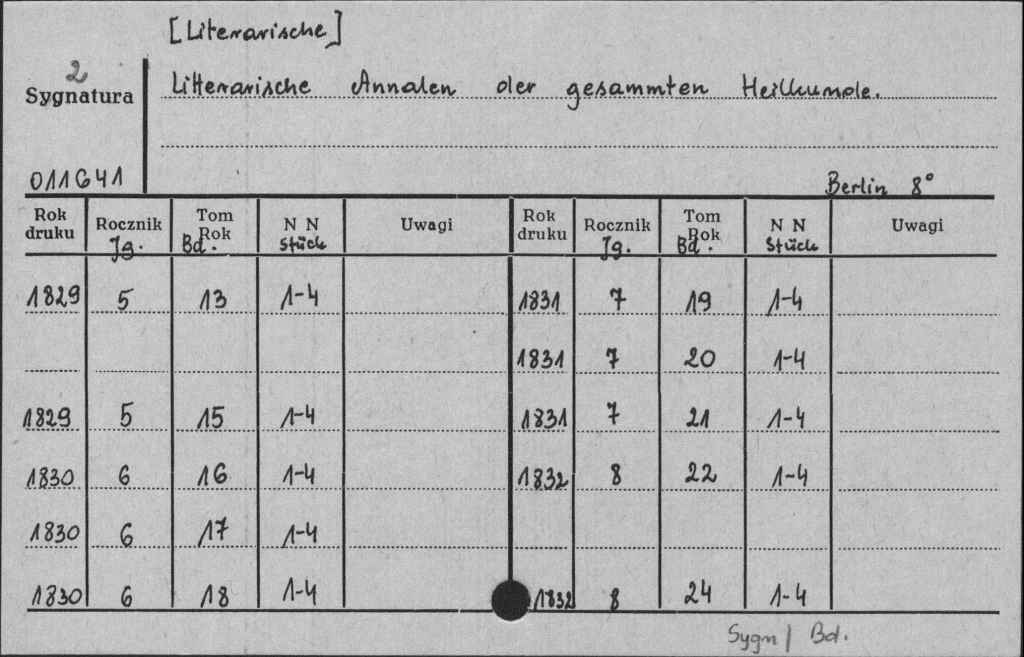 [Literarische]
2
Sygnatura
Litterarische Annalen der gesammten Heilkunde.
011641
Berlin 8°
Rok druku Rocznik Jg. Tom Rok Bd. N N Stück Uwagi Rok druku Rocznik Jg. Tom Rok Bd. N N Stück Uwagi
1829 5 13 1-4 1831 7 19 1-4
1831 7 20 1-4
1829 5 15 1-4 1831 7 21 1-4
1830 6 16 1-4 1832 8 22 1-4
1830 6 17 1-4
1830 6 18 1-4 1832 8 24 1-4
Sygn/ Bd.